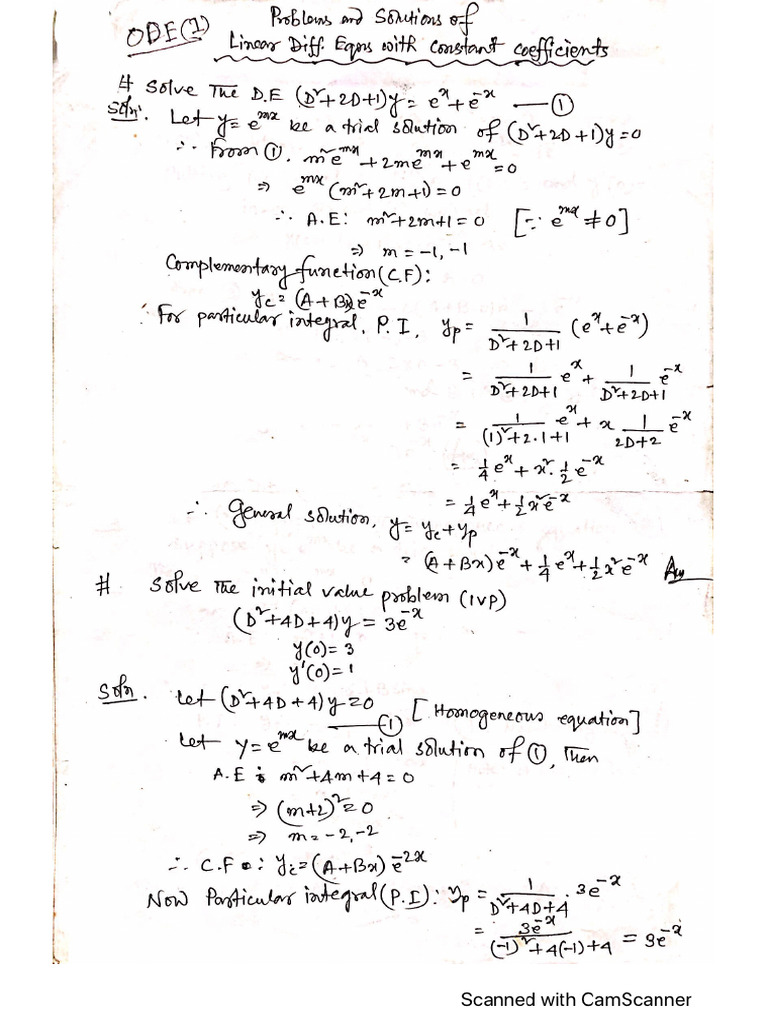 ODE(1)
Problems and Solutions of
Linear Diff. Eqns with constant coefficients
# Solve The D.E (D²+2D+1)y = eˣ+e⁻ˣ —— ①
Soln. Let y= eᵐˣ be a trial solution of (D²+2D+1)y=0
∴ From ①. m²eᵐˣ+2meᵐˣ+eᵐˣ=0
⇒ eᵐˣ(m²+2m+1)=0
∴ A.E: m²+2m+1=0 [∵ eᵐˣ≠0]
⇒ m=-1,-1
Complementary function(C.F):
y_c=(A+Bx)e⁻ˣ
For particular integral, P.I, y_p= 1/(D²+2D+1) (eˣ+e⁻ˣ)
= 1/(D²+2D+1) eˣ + 1/(D²+2D+1) e⁻ˣ
= 1/((1)²+2.1+1) eˣ + x 1/(2D+2) e⁻ˣ
= 1/4 eˣ + x². 1/2 e⁻ˣ
= 1/4 eˣ + 1/2 x²e⁻ˣ
∴ General solution, y= y_c+y_p
= (A+Bx)e⁻ˣ + 1/4 eˣ + 1/2 x²e⁻ˣ Ans
# Solve The initial value problem (IVP)
(D²+4D+4)y = 3e⁻ˣ
y(0)=3
y'(0)=1
Soln. Let (D²+4D+4)y=0 —— ① [Homogeneous equation]
Let y=eᵐˣ be a trial solution of ①, Then
A.E: m²+4m+4=0
⇒ (m+2)²=0
⇒ m=-2,-2
∴ C.F: y_c=(A+Bx)e⁻²ˣ
Now Particular integral(P.I): y_p= 1/(D²+4D+4) . 3e⁻ˣ
= 3e⁻ˣ/((-1)²+4(-1)+4) = 3e⁻ˣ
Scanned with CamScanner